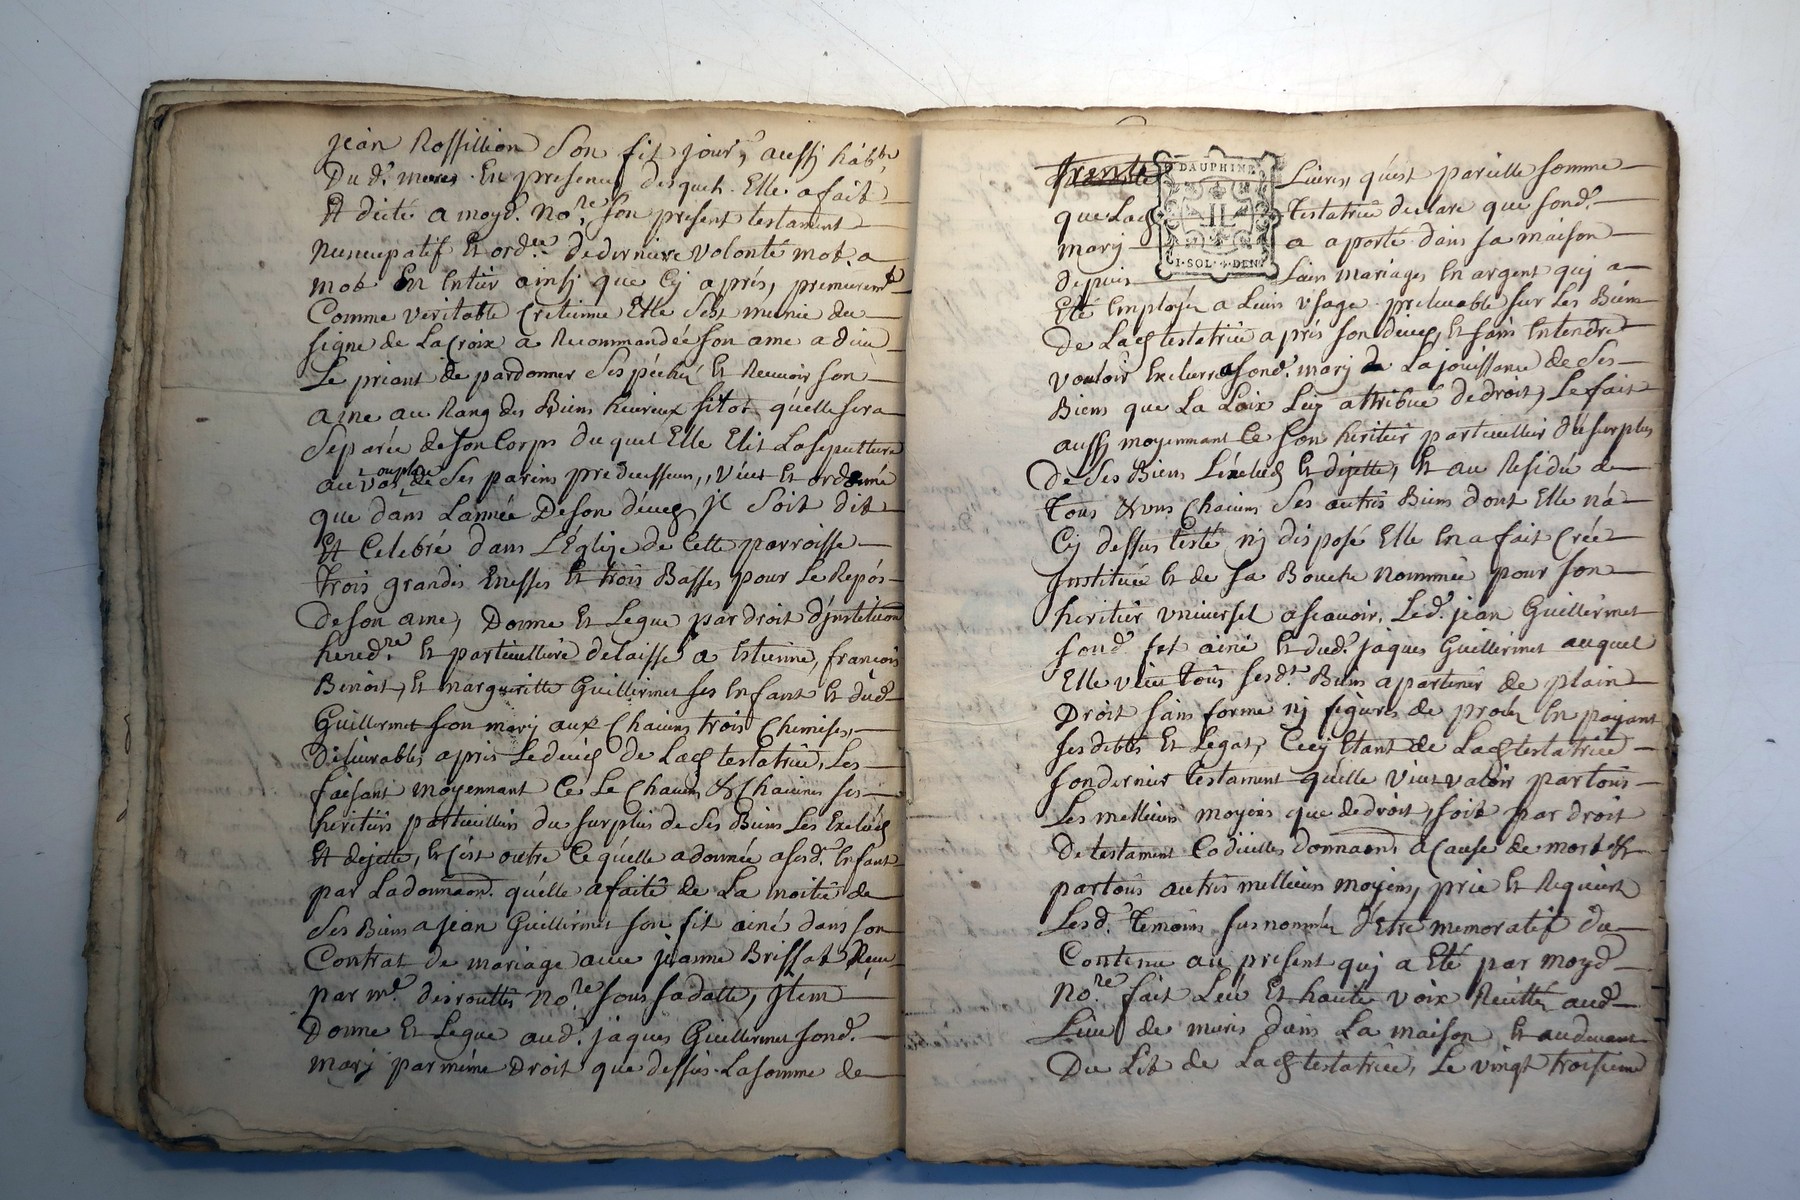 jean Rossillion son fit jour, aussy hab.
Du d. mures. En presence desqueh. Elle a fait
Et dicté a moyd. No.re son present testament
Nuncupatif Et ord.re de derniere volonté mot a
mot En Entier ainsy que Cy aprés, premierem.t
Comme veritable Cretienne Elle S'est munie du
signe de La Croix a Recommandée son ame a dieu
Le priant de pardonner Ses péchés Et Recevoir son
ame au Rang des Biens heureux sitot qu'elle sera
Séparée de son Corps du quel Elle Elit La sepulture
au de Ses parens predecesseurs, veut Et ordonné
que dans L'année De son décès jl Soit dit
Et Celebré dans L'Église de Cette parroisse
trois grandes messes Et trois Basses pour Le Repós
de son ame, Donne Et Legue par droit d'jnstitution
hered.re Et particulliere delaisse a Estienne, françois
Benoit, Et margueritte Guillermet ses Enfant Et dud.
Guillermet son mary aux Chacuns trois Chemises,
Délivrables aprés Le decés de Lad testatrice, Les
faisant moyennant Ce Le Chacun & Chacunes ses
heritiers particulliers du surplus de Ses Biens Les Exclud
Et dejette, Et C'est outre Ce qu'elle a donnée a sesd. Enfant
par La donnaon. qu'elle a faitte de La moitié de
Ses Biens a jean Guillermet son fit ainé dans son
Contrat de mariage avec jeanne Brissat Receu
par m.e desrouttes No.re sous sa datte, jtem
Donne Et Legue aud. jaques Guillermet sond.
mary par méme Droit que dessus La somme de
trente Livres, qu'est pareille somme
que Lad Testatrice declare que sond.
mary a aporté dans sa maison
depuis Leurs mariages En argent quj a
Eté Employée a Leurs usage prelevable sur Les Biens
de Lad testatrice aprés son décés, Et sans Entendre
vouloir Exclurre sond. mary de La jouissance de Ses
Biens que La Loix Luy attribue de droit, Le fait
aussy moyennant Ce son heritier particullier du surplus
de Ses Biens L'exclud Et dejette, Et au Residu de
Tous & uns Chacuns Ses autres Biens dont Elle n'a
Cy dessus testé ny disposé Elle En a fait Créé
jnstitué Et de sa Bouche Nommée pour son
heritier universel ascavoir, Led. jean Guillermet
sond. fit ainé Et dud. jaques Guillermet auquel
Elle veut tous sesd. Biens apartenir de plain
Droit sans forme ny figures de procès En payant
ses dettes Et Legat, Cecy Etant de Lad testatrice
son dernier testament qu'elle veut valoir partous
Les mellieurs moyens que de droit, soit par droit
de testament Codicilles donnaons a Cause de mort &
partous autres mellieurs moyens, prie Et Requiert
Lesd. temoins susnommés d'Etre memoratif du
Contenu au present quj a Eté par moyd
No.re fait Leu Et haute voix Recitté aud
Lieu de mures dans La maison Et audevant
Du Lit de Lad testatrice, Le vingt troisieme
DAUPHINE
I·SOL·4·DEN